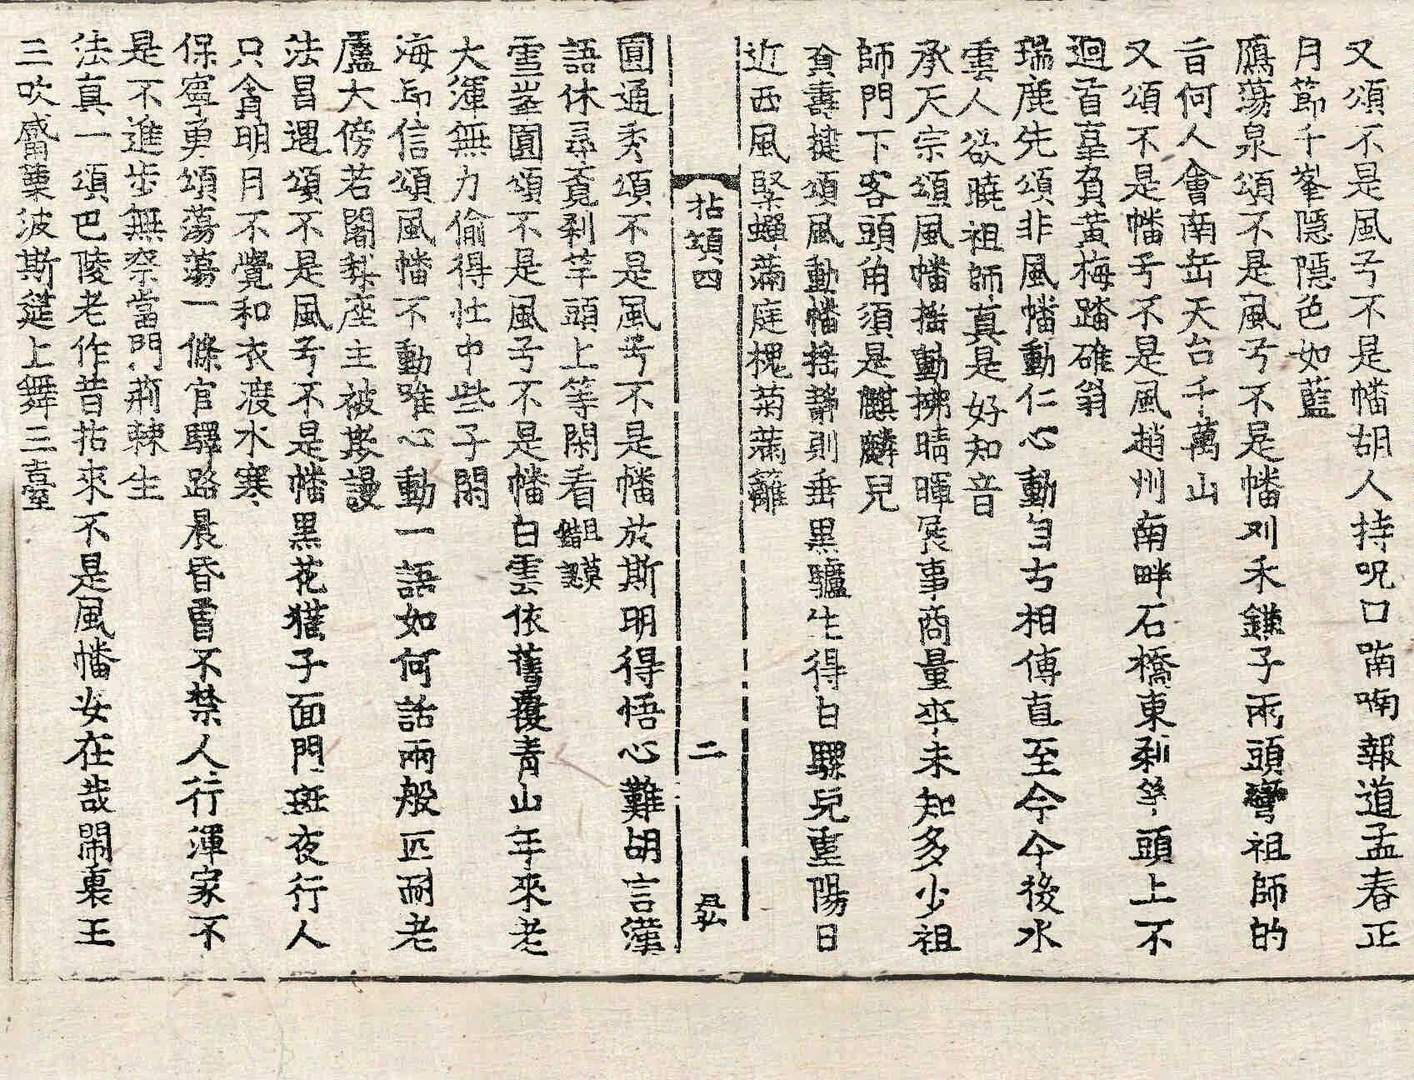 又頌不是風兮不是幡胡人持呪口喃喃報道孟春正
月節千峯隱隱色如藍
鴈蕩泉頌不是風兮不是幡刈禾鎌子兩頭彎祖師的
旨何人會南岳天台千萬山
又頌不是幡兮不是風趙州南畔石橋東刹竿頭上不
迴首辜負黃梅踏碓翁
瑞鹿先頌非風幡動仁心動自古相傳直至今今後水
雲人欲曉祖師真是好知音
承天宗頌風幡搖動拂晴暉展事商量來未知多少祖
師門下客頭角須是麒麟兒
資壽捷頌風動幡搖靜則垂黑驢生得白騾兒重陽日
近西風緊蟬滿庭槐菊滿籬
拈頌四
二
弘
圓通秀頌不是風兮不是幡於斯明得悟心難胡言漢
語休尋覓刹竿頭上等閑看且莫錯認
雪峯圓頌不是風兮不是幡白雲依舊覆青山年來老
大渾無力偷得忙中些子閑
海印信頌風幡不動唯心動一語如何話兩般叵耐老
盧大傍若闍梨座主被欺謾
法昌遇頌不是風兮不是幡黑花猫子面門斑夜行人
只貪明月不覺和衣渡水寒
保寧勇頌蕩蕩一條官驛路晨昏嘗不禁人行渾家不
是不進步無奈當門荊棘生
法真一頌巴陵老作昔拈來不是風幡安在哉鬧裏王
三吹觱篥波斯筵上舞三臺